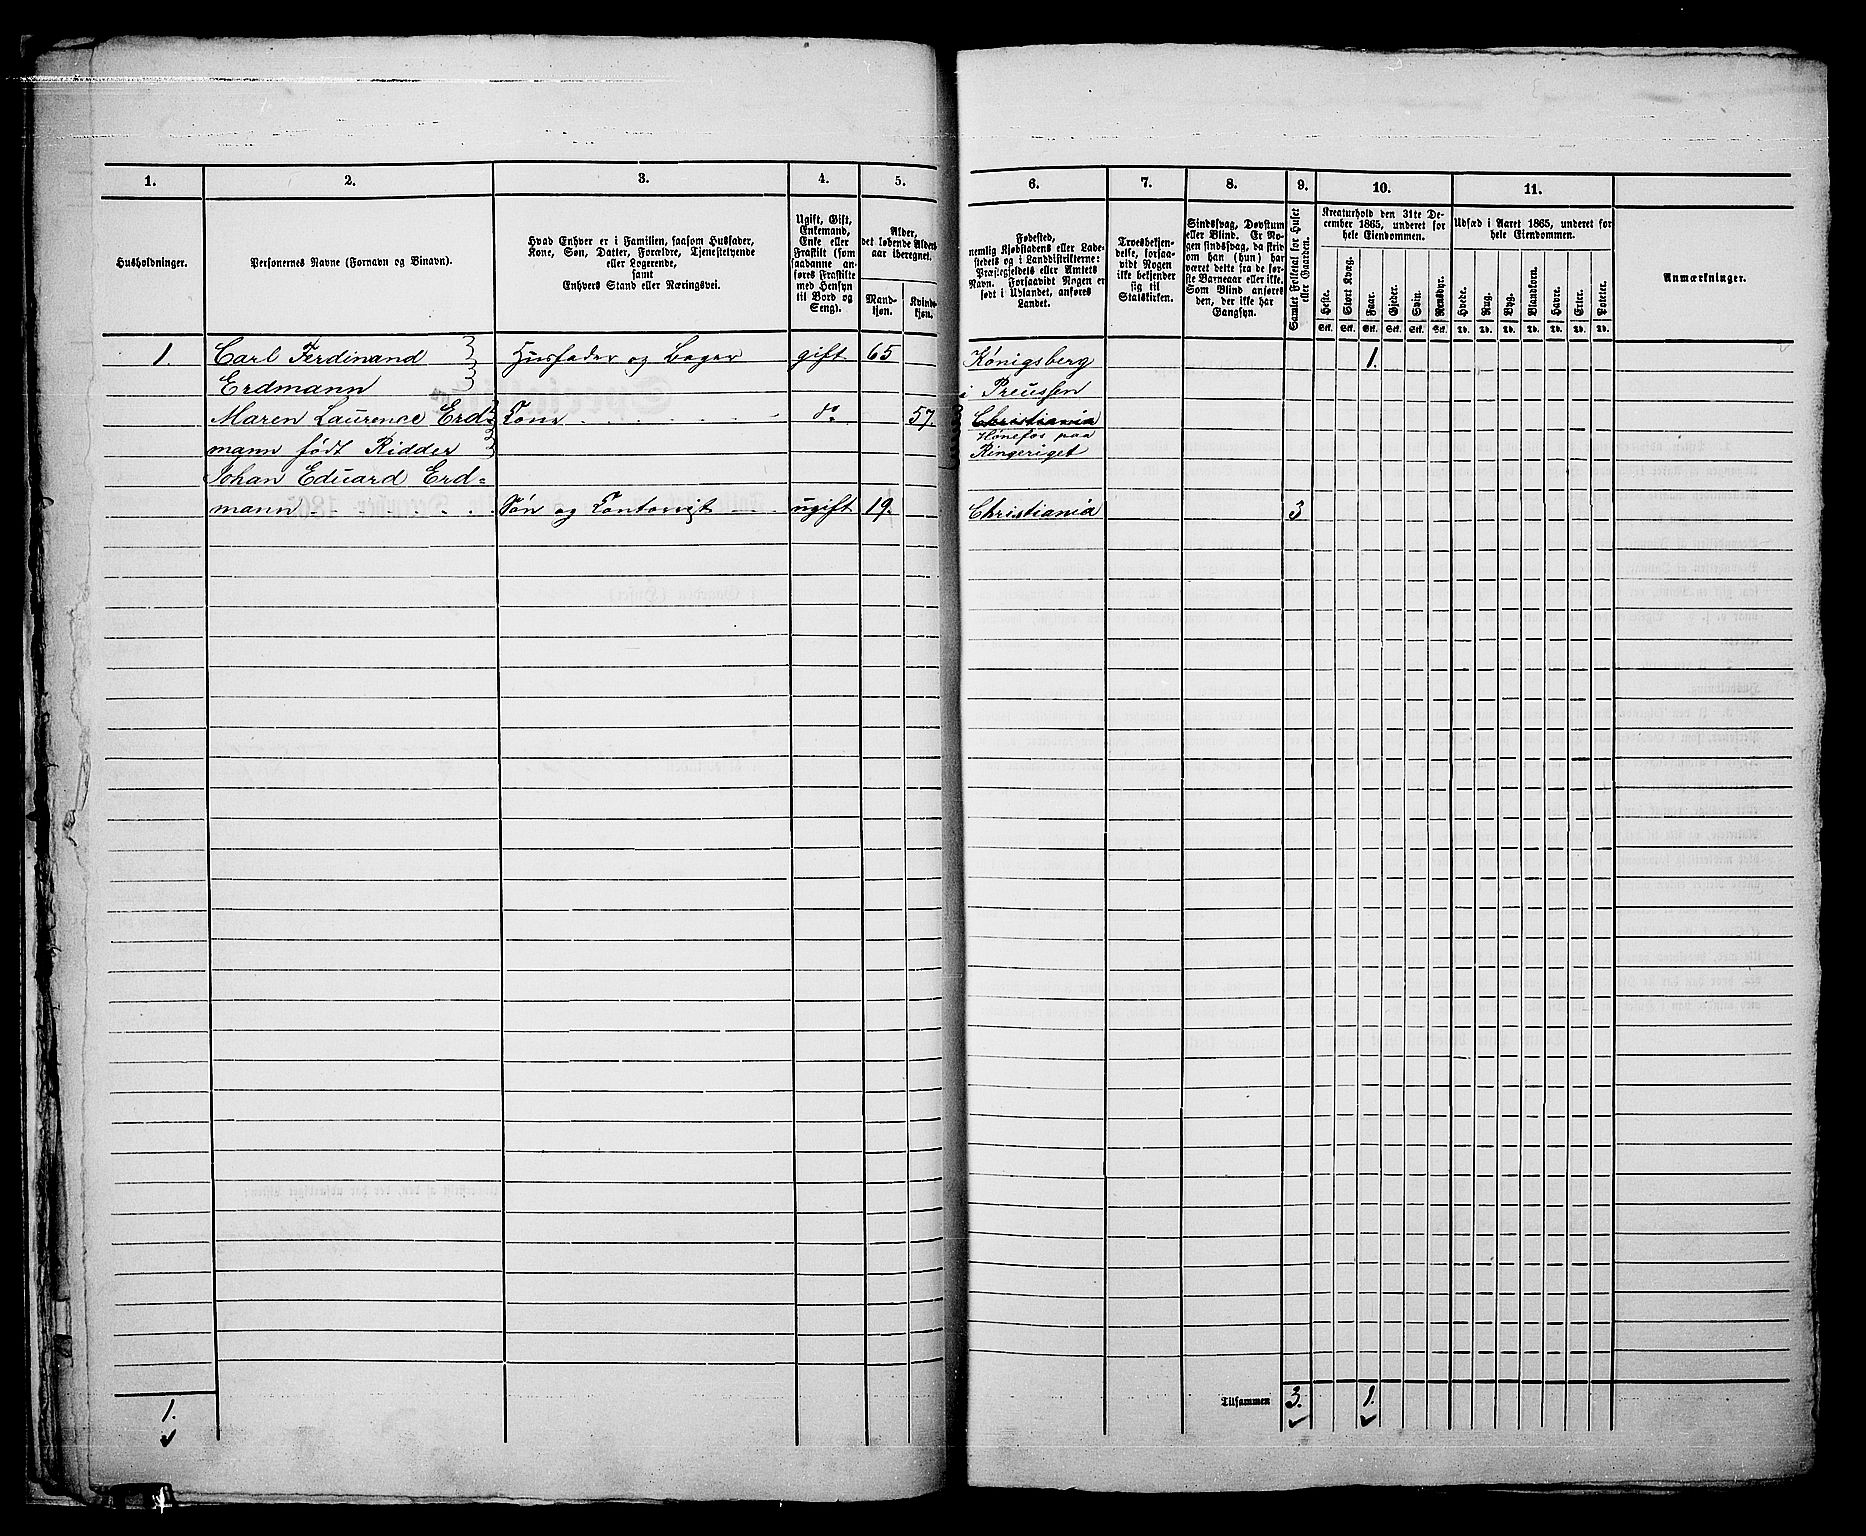 1. 2. 3. 4. 5. 6. 7. 8. 9. 10. 11.
Husholdninger.
Personernes Navne (Fornavn og Binavn).
Hvad Enhver er i Familien, saasom Husfader,
Kone, Søn, Datter, Forældre, Tjenestetyende
eller Logerende,
samt
Enhvers Stand eller Næringsvei.
Ugift, Gift,
Enkemand,
Enke eller
Fraskilt (som
saadanne an-
føres Fraskilte
med Hensyn
til Bord og
Seng).
Alder,
det løbende Alders-
aar iberegnet.
Mand-
kjøn.
Kvind-
kjøn.
Fødested,
nemlig Kjøbstadens eller Lade-
stedets og i Landdistrikterne:
Præstegjeldets eller Amtets
Navn. Forsaavidt Nogen er
født i Udlandet, anføres
Landet.
Troesbekjen-
delse, forsaa-
vidt Nogen
ikke bekjender
sig til
Statskirken.
Sindssvag, Døvstum
eller Blind. Er No-
gen sindssvag, da skriv
om han (hun) har
været dette fra de før-
ste Barneaar eller ikke.
Som Blind anføres
den, der ikke har
Gangsyn.
Samlet Folketal for Huset
eller Gaarden.
Kreaturhold den 31te De-
cember 1865, underet for
hele Eiendommen.
Heste. Stort Kvæg. Faar. Gjeder. Svin. Rensdyr.
Stk. Stk. Stk. Stk. Stk. Stk.
Udsæd i Aaret 1865, underet for
hele Eiendommen.
Hvede. Rug. Byg. Blandkorn. Havre. Erter. Poteter.
Td. Td. Td. Td. Td. Td. Td.
Anmærkninger.
1. Carl Ferdinand Husfader og Bager gift 65 Königsberg 1.
Erdmann i Preussen
Maren Laurence Erd= Kone do 57. Christiania
Hönefos paa
mann födt Ridder Ringeriget
Johan Eduard Erd=
mann Sön og Contorist ugift 19. Christiania 3
1. Tilsammen 3. 1.